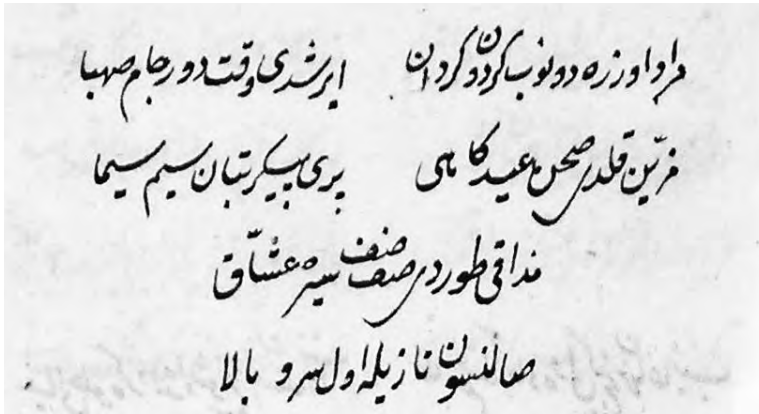 مراد اوزره دونوب گردون گردان ایرشدی وقت دور جام صهبا
مزیّن قلدی صحن عیدگاهی پری پیکر بتان سیم سیما
مذاقی طوردی صف صف سیره عشّاق
صالنسون نازیله اول سرو بالا